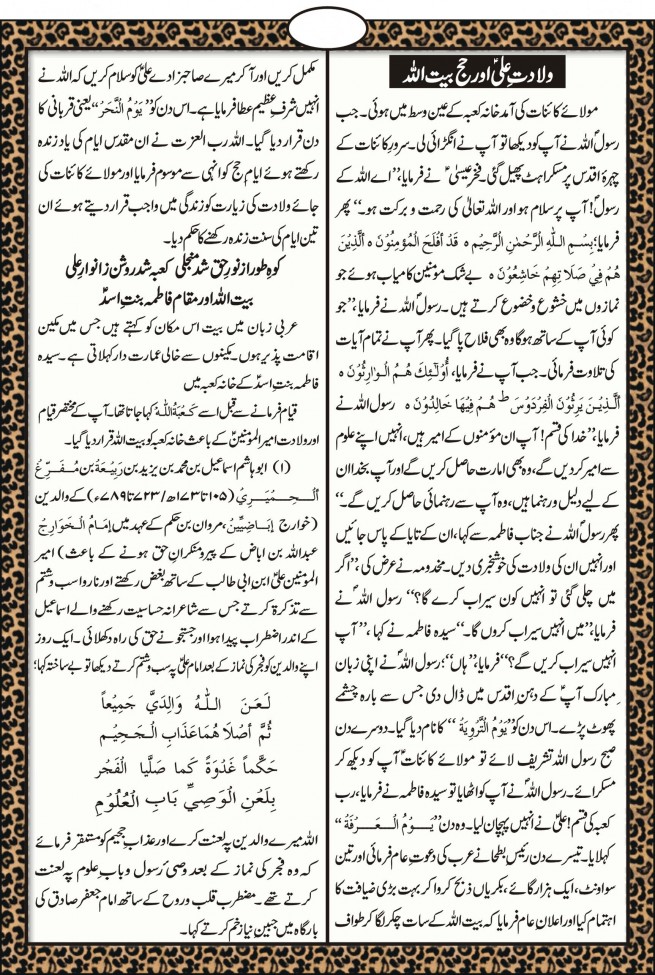 ولادتِ علیؑ اور حج بیت اللہ
مولائے کائنات کی آمد خانہ کعبہ کے عین وسط میں ہوئی۔ جب
رسولؐ اللہ نے آپ کو دیکھا تو آپ نے انگڑائی لی۔ سرورِ کائنات کے
چہرۂ اقدس پر مسکراہٹ پھیل گئی۔ فخرِ عیسیٰؑ نے فرمایا؛’’اے اللہ کے
رسولؐ! آپ پر سلام ہو اور اللہ تعالیٰ کی رحمت و برکت ہو۔‘‘ پھر
فرمایا؛بِسْمِ اللہِ الرَّحْمٰنِ الرَّحِیْمِ ہ قَدْ اَفْلَحَ الْمُؤْمِنُوْنَ ہ اَلَّذِیْنَ
ھُمْ فِیْ صَلَاتِھِمْ خَاشِعُوْنَ ہ بے شک مومنین کامیاب ہوئے جو
نمازوں میں خشوع و خضوع کرتے ہیں۔ رسولؐ اللہ نے فرمایا،’’جو
کوئی آپ کے ساتھ ہوگا وہ بھی فلاح پا گیا۔ پھر آپ نے تمام آیات
کی تلاوت فرمائی۔ جب آپ نے فرمایا، اُوْلٰٓئِکَ ھُمُ الْوٰارِثُوْنَ ہ
اَلَّذِیْنَ یَرِثُوْنَ الْفِرْدَوْسَ ط ھُمْ فِیْھَا خَالِدُوْنَ ہ رسول اللہ نے
فرمایا،’’خدا کی قسم! آپ ان مؤمنوں کے امیر ہیں، انہیں اپنے علوم
سے امیر کر دیں گے، وہ بھی امارت حاصل کریں گے اور آپ بخدا ان
کے لیے دلیل و رہنما ہیں، وہ آپ سے رہنمائی حاصل کریں گے۔‘‘
پھر رسولؐ اللہ نے جناب فاطمہ سے کہا، ان کے تایا کے پاس جائیں
اور انہیں ان کی ولادت کی خوشخبری دیں۔ مخدومہ نے عرض کی؛’’اگر
میں چلی گئی تو انہیں کون سیراب کرے گا؟‘‘ رسول اللہؐ نے
فرمایا،’’میں انہیں سیراب کروں گا۔‘‘ سیدہ فاطمہ نے کہا، ’’آپ
انہیں سیراب کریں گے؟‘‘ فرمایا؛’’ہاں‘‘؛ رسول اللہؐ نے اپنی زبان
مبارک آپؑ کے دہنِ اقدس میں ڈال دی جس سے بارہ چشمے
پھوٹ پڑے۔ اس دن کو’’یَوْمُ التَّرْوِیَةُ‘‘ کا نام دیا گیا۔ دوسرے دن
صبح رسول اللہ تشریف لائے تو مولائے کائناتؑ آپ کو دیکھ کر
مسکرائے۔ رسولؐ اللہ نے آپ کو اٹھایا تو سیدہ فاطمہ نے فرمایا، رب
کعبہ کی قسم! علیؑ نے انہیں پہچان لیا۔ وہ دن ’’یَــوْمُ الْـعَــرَفَةُ‘‘
کہلایا۔ تیسرے دن رئیسِ بطحا نے عرب کی دعوتِ عام فرمائی اور تین
سو اونٹ، ایک ہزار گائے، بکریاں ذبح کروا کر بہت بڑی ضیافت کا
اہتمام کیا اور اعلانِ عام فرمایا کہ بیت اللہ کے سات چکر لگا کر طواف
مکمل کریں اور آ کر میرے صاحبزادے علیؑ کو سلام کریں کہ اللہ نے
انہیں شرفِ عظیم عطا فرمایا ہے۔ اس دن کو’’یَوْمُ النَّحَرُ‘‘ یعنی قربانی کا
دن قرار دیا گیا۔ اللہ رب العزت نے ان مقدس ایام کی یاد زندہ
رکھتے ہوئے ایامِ حج کو انہی سے موسوم فرمایا اور مولائے کائنات کی
جائے ولادت کی زیارت کو زندگی میں واجب قرار دیتے ہوئے ان
تین ایام کی سنت زندہ رکھنے کا حکم دیا۔
کوہِ طور از نورِ حق شد منجلی کعبہ شد روشن ز انوارِ علی
بیت اللہ اور مقامِ فاطمہ بنتِ اسدؑ
عربی زبان میں بیت اس مکان کو کہتے ہیں جس میں مکین
اقامت پذیر ہوں۔ مکینوں سے خالی عمارت دار کہلاتی ہے۔ سیدہ
فاطمہ بنتِ اسدؑ کے خانہ کعبہ میں
قیام فرمانے سے قبل اسے کَـعْـبَةُ اللّٰـہ کہا جاتا تھا۔ آپ کے مختصر قیام
اور ولادت امیر المومنینؑ کے باعث خانہ کعبہ کو بیت اللہ قرار دیا گیا۔
(۱) ابو ہاشم اسماعیل بن محمد بن یزید بن رَبِیْعَۃَ بن مُـفَـرِّغُ
الْـحِـمْـیَـرِیُ (۱۰۵ تا ۱۷۳ھ/۷۲۳ تا ۷۸۹ء) کے والدین
(خوارج اِبَاضِیِیْنَ، مروان بن حکم کے عہد میں اِمَامُ الْخَوَارِجِ
عبداللہ بن اباض کے پیرو منکرانِ حق ہونے کے باعث) امیر
المومنین علیؑ ابن ابی طالب کے ساتھ بغض رکھتے اور ناروا سب و شتم
سے تذکرہ کرتے جس سے شاعرانہ حساسیت رکھنے والے اسماعیل
کے اندر اضطراب پیدا ہوا اور جستجو نے حق کی راہ دکھلائی۔ ایک روز
اپنے والدین کو فجر کی نماز کے بعد امام علیؑ پر سب و شتم کرتے دیکھا تو بے ساختہ کہا؛
لَـعَـنَ اللّٰـهُ وَالِدَيَّ جَمِيْعاً
ثُمَّ أصْلَاهُمَا عَذَابِ الْـجَـحِـيْـم
حَكَّماً غَدْوَةً كَما صَلَّيا الْفَجْر
بِلَعْنِ الْوَصِيِّ بَابِ الْعُلُوْمِ
اللہ میرے والدین پر لعنت کرے اور عذابِ جحیم کو مستقر فرمائے
کہ وہ فجر کی نماز کے بعد وصیٔ رسول و بابِ علوم پر لعنت
کرتے تھے۔ مضطرب قلب و روح کے ساتھ امام جعفر صادقؑ کی
بارگاہ میں جبینِ نیاز خم کرتے کہا۔